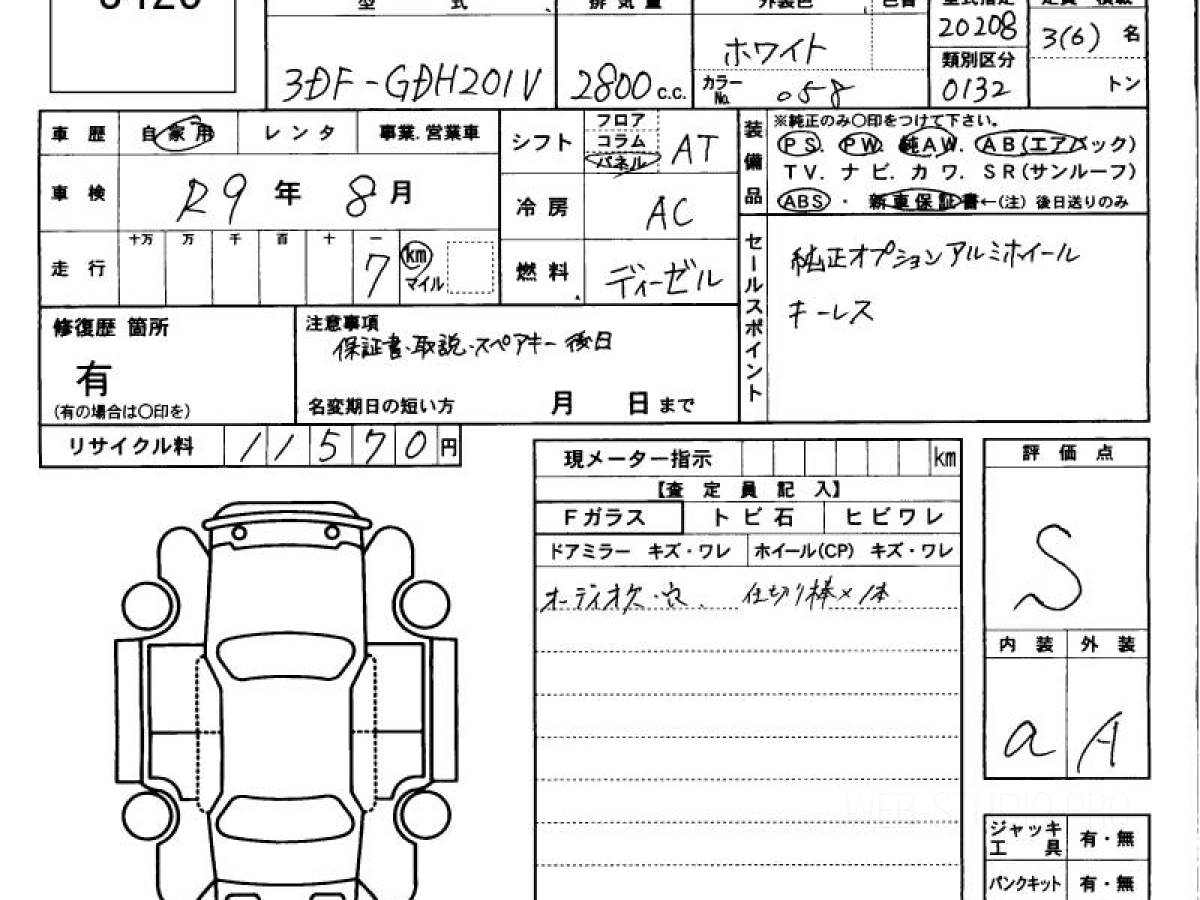 型 式 排気量 外装色 色替 型式指定 定員 積載
3DF-GDH201V 2800 c.c. ホワイト 20208 3(6) 名
カラーNo. 058 類別区分 0132 トン
車歴 自家用 レンタ 事業.営業車
シフト フロア コラム パネル AT
車検 R9年 8月
冷房 AC
走行 十万 万 千 百 十 一
7 km マイル
燃料 ディーゼル
装備品 ※純正のみ〇印をつけて下さい。
PS. PW. 純AW. AB(エアバック)
TV. ナビ. カワ. SR(サンルーフ)
ABS ・ 新車保証書←(注) 後日送りのみ
セールスポイント
純正オプションアルミホイール
キーレス
修復歴 箇所
有
(有の場合は〇印を)
注意事項
保証書、取説、スペアキー 後日
名変期日の短い方 月 日まで
リサイクル料 11570円
現メーター指示 km
【査定員記入】
Fガラス トビ石 ヒビワレ
ドアミラー キズ・ワレ ホイール(CP) キズ・ワレ
オーディオ欠・穴、 仕切り棒×1本
評価点
S
内装 外装
a A
ジャッキ工具 有・無
パンクキット 有・無
WEB-STUDIO.PRO